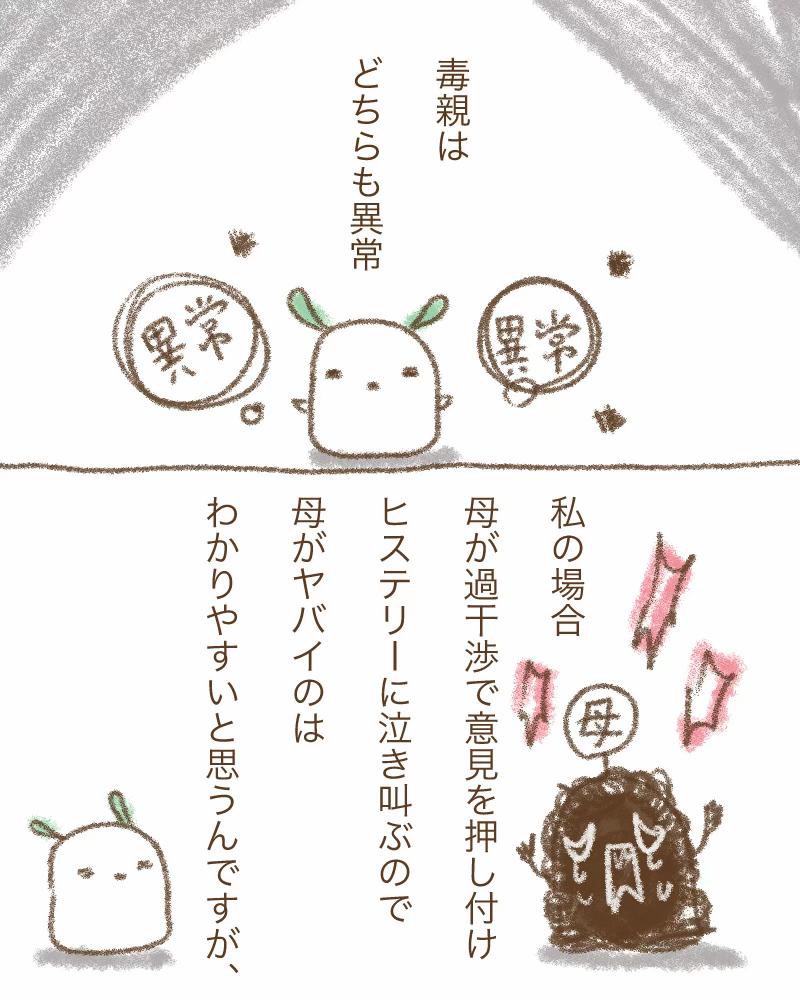 毒親は
どちらも異常
異常
異常
私の場合
母が過干渉で意見を押し付け
ヒステリーに泣き叫ぶので
母がヤバイのは
わかりやすいと思うんですが、
母